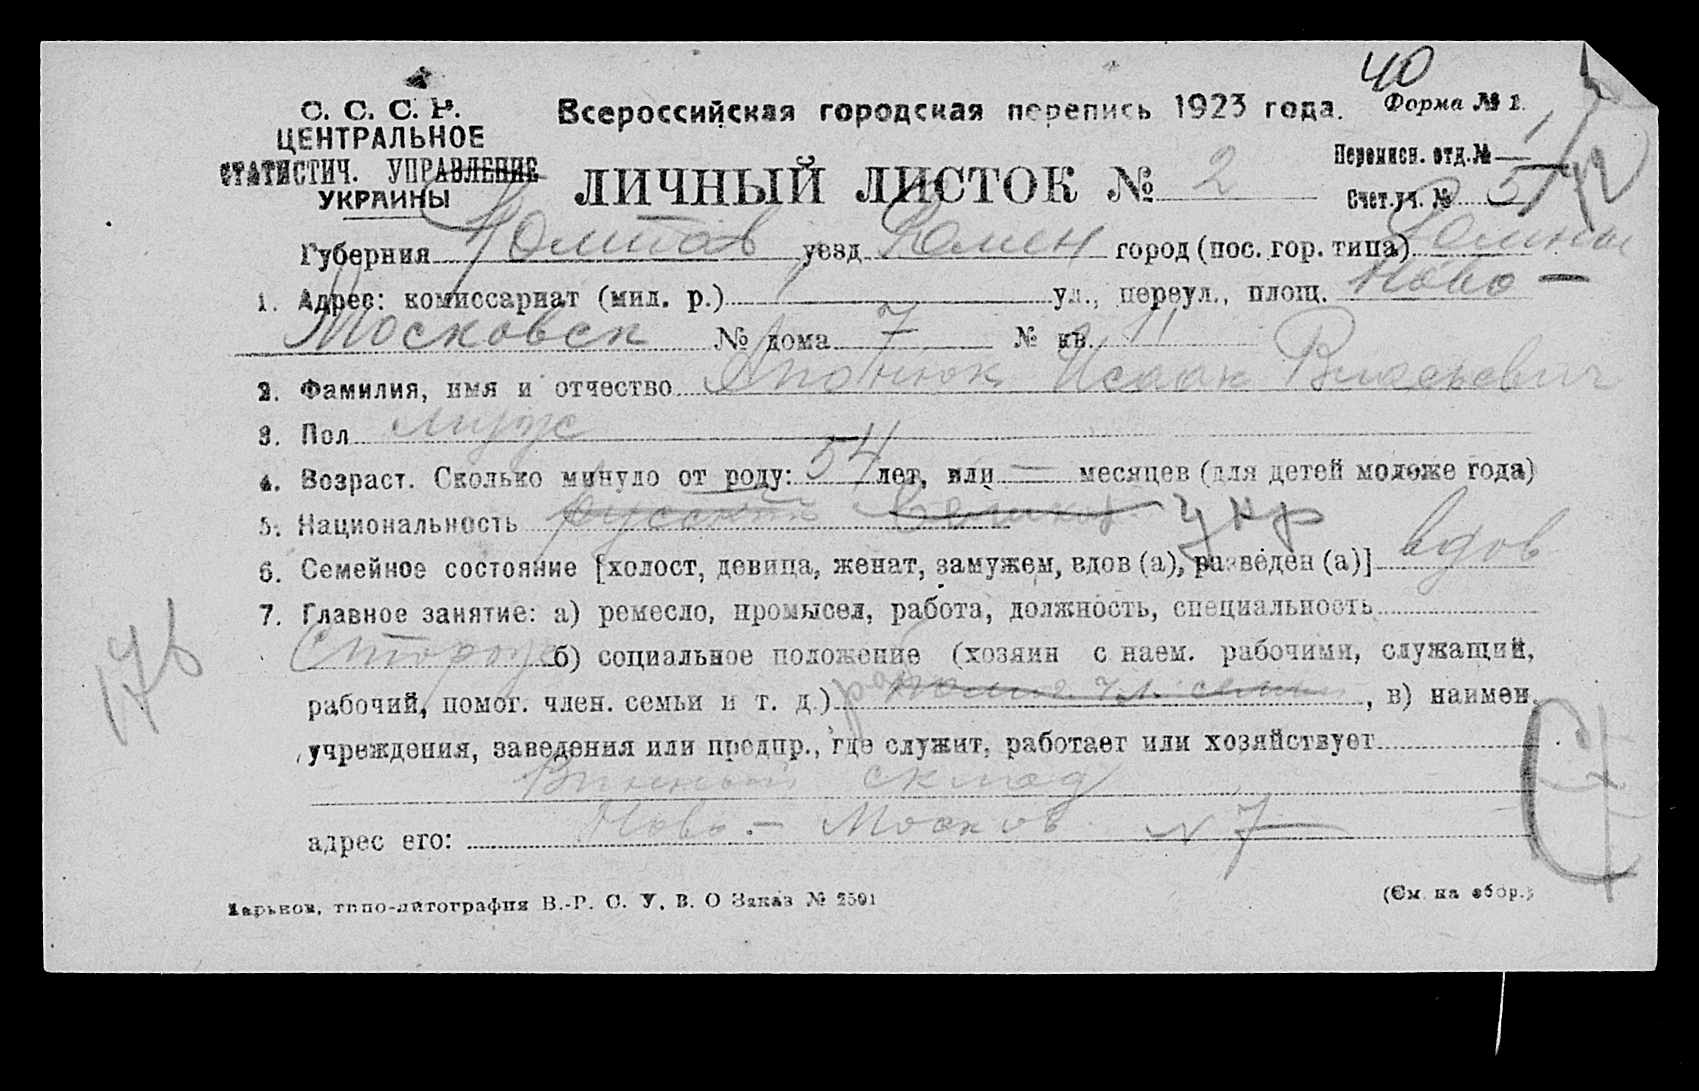 40
С. С. С. Р.
ЦЕНТРАЛЬНОЕ
СТАТИСТИЧ. УПРАВЛЕНИЕ
УКРАИНЫ
Всероссийская городская перепись 1923 года.
Форма № 1.
ЛИЧНЫЙ ЛИСТОК № 2
Переписн. отд. № 1
Счет. уч. № 5
Губерния Полтав уезд Ромен город (пос. гор. типа) Ромны
1. Адрес: комиссариат (мил. р.) — ул., переул., площ. Ново-
Московск № дома 7 № кв. 11
2. Фамилия, имя и отчество Исаак Власьевич
3. Пол муж
4. Возраст. Сколько минуло от роду: 54 лет, или — месяцев (для детей моложе года)
5. Национальность русский Великор укр
6. Семейное состояние [холост, девица, женат, замужем, вдов (а), разведен (а)] вдов
7. Главное занятие: а) ремесло, промысел, работа, должность, специальность
Сторож б) социальное положение (хозяин с наем. рабочими, служащий,
рабочий, помог. член. семьи и т. д.) раб помог. чл. семьи, в) наимен.
учреждения, заведения или предпр., где служит, работает или хозяйствует
Винный склад
адрес его: Ново-Москов № 7
176
Харьков, типо-литография В.-Р. С. У. В. О Заказ № 2501
(См. на обор.)